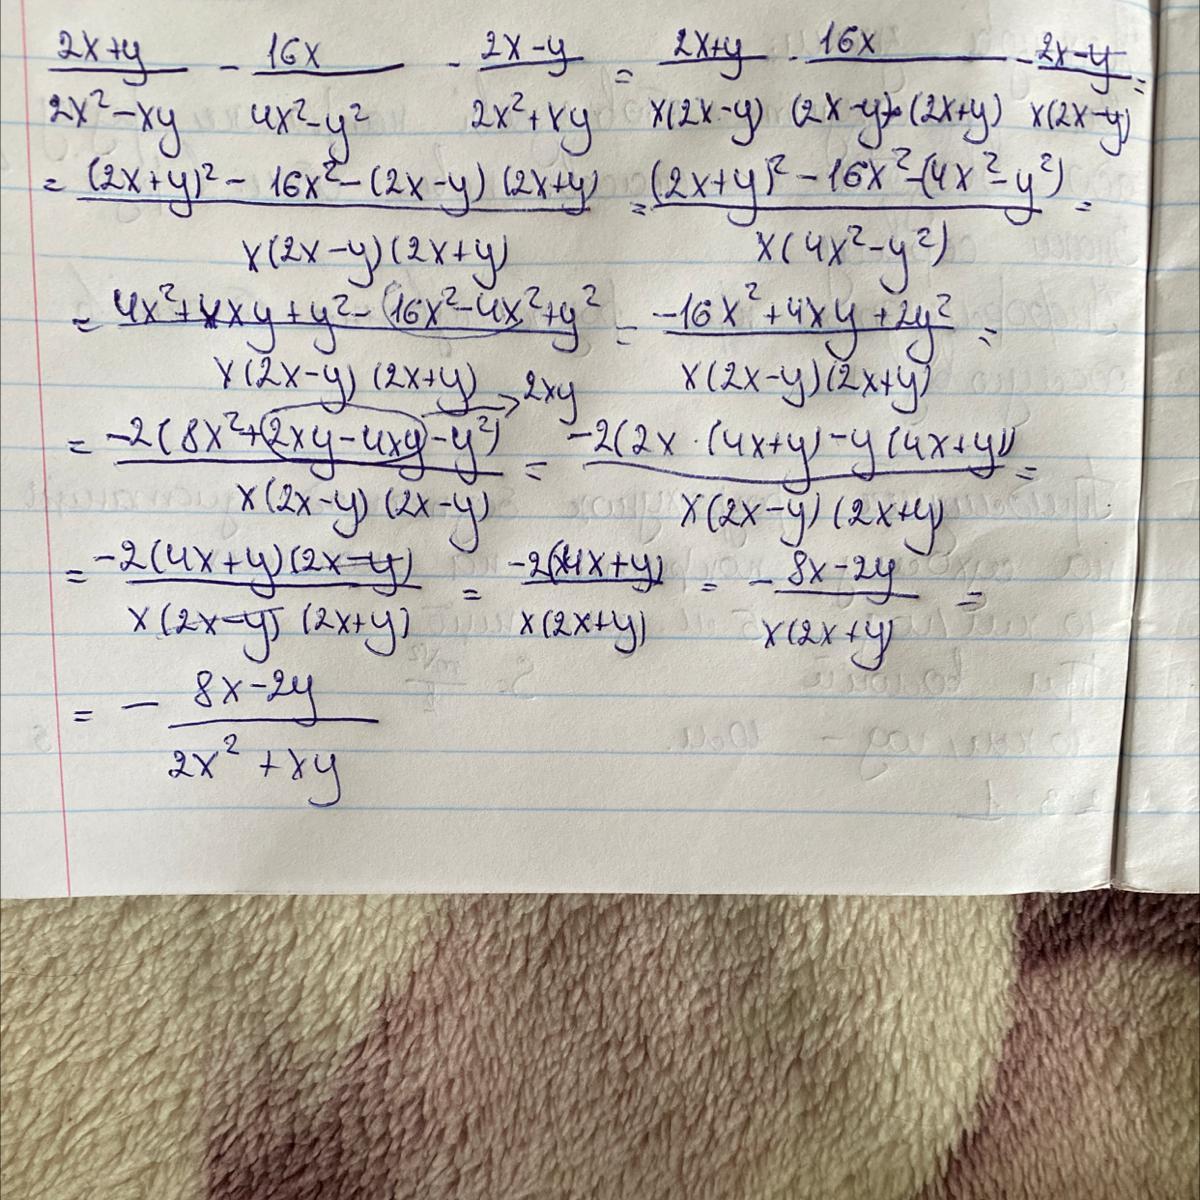 (2x+y)/(2x²-xy) - 16x/(4x²-y²) - (2x-y)/(2x²+xy) = (2x+y)/(x(2x-y)) - 16x/((2x-y)(2x+y)) - (2x-y)/(x(2x-y)) =
= ((2x+y)² - 16x² - (2x-y)(2x+y))/(x(2x-y)(2x+y)) = ((2x+y)² - 16x² - (4x²-y²))/(x(4x²-y²)) =
= (4x²+4xy+y² - 16x²-4x²+y²)/(x(2x-y)(2x+y)) = (-16x²+4xy+2y²)/(x(2x-y)(2x+y)) =
→ 2xy
= (-2(8x²+2xy-4xy-y²))/(x(2x-y)(2x-y)) = (-2(2x·(4x+y)-y(4x+y)))/(x(2x-y)(2x+y)) =
= (-2(4x+y)(2x-y))/(x(2x-y)(2x+y)) = (-2(4x+y))/(x(2x+y)) = - (8x-2y)/(x(2x+y)) =
= - (8x-2y)/(2x²+xy)